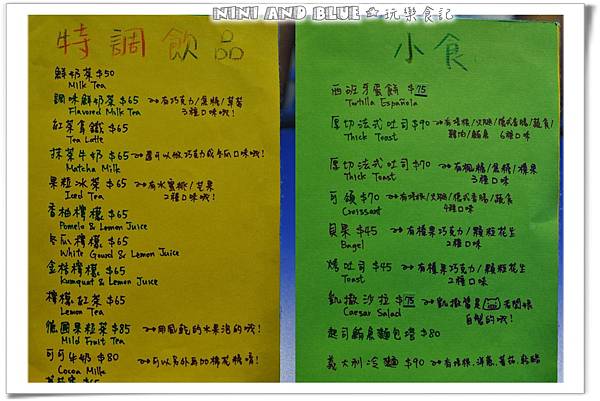 NINI AND BLUE 玩樂食記
特調飲品
鮮奶茶 $50
Milk Tea
調味鮮奶茶 $65 →有巧克力/焦糖/草莓
Flavored Milk Tea 3種口味哦!
紅茶拿鐵 $65
Tea Latte
抹茶牛奶 $65 →還可以做巧克力或冬瓜口味哦!
Matcha Milk
果粒冰茶 $65 →有水蜜桃/芒果
Iced Tea 2種口味哦!
香柚檸檬 $65
Pomelo & Lemon Juice
冬瓜檸檬 $65
White Gourd & Lemon Juice
金桔檸檬 $65
Kumquat & Lemon Juice
檸檬紅茶 $65
Lemon Tea
德國果粒茶 $85 →用風乾的水果泡的哦!
Mild Fruit Tea
可可牛奶 $80 →可以另外再加棉花糖唷!
Cocoa Milk
小食
西班牙蛋餅 $75
Tortilla Española
厚切法式吐司 $90 →有培根/火腿/德式香腸/蔬食/
Thick Toast 雞肉/鮪魚 6種口味
厚切法式吐司 $70 →有楓糖/焦糖/榛果
Thick Toast 3種口味
可頌 $70 →有培根/火腿/德式香腸/蔬食
Croissant 4種口味
貝果 $45 →有榛果巧克力/顆粒花生
Bagel 2種口味
烤吐司 $45 →有榛果巧克力/顆粒花生
Toast 2種口味
凱撒沙拉 $75 →凱撒醬是 老闆娘
Caesar Salad 自製的哦!
起司鮪魚麵包塔 $80
義大利冷麵 $90 →有培根,洋蔥,蕃茄,乾酪